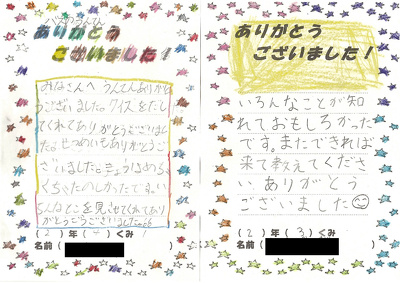 バスのうんてんしゅ
ありがとう
ございました！
みなさんへ うんてんありがと
うございました。クイズをだし
てくれてありがとうございまし
た。せつめいもありがとうご
ざいました。きょうはめちゃ
くちゃたのしかったです。い
ろんなとこを見せてくれてあり
がとうございました。
(2)年(一)くみ
名前(
ありがとう
ございました！
いろんなことが知
れておもしろかった
です。またできれば
来て教えてくださ
い。ありがとう
ございました
(2)年(3)くみ
名前(